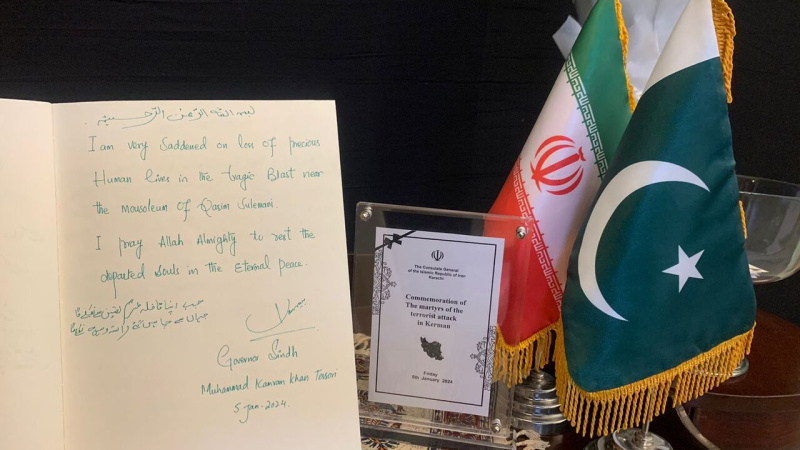 بسم الله الرحمن الرحيم
I am very Saddened on loss of precious
Human lives in the tragic Blast near
the mousoleum of Qasim Sulemani.
I pray Allah Almighty to rest the
departed Souls in the Eternal peace.
جب اپنا قافلہ عزم و یقیں سے نکلے گا
جہاں سے چاہیں گے رستہ وہیں سے نکلے گا
Governor Sindh
Muhammad Kamran Khan Tessori
5-Jan-2024.
The Consulate General
of the Islamic Republic of Iran
Karachi
Commemoration of
The martyrs of the
terrorist attack
in Kerman
Friday
5th January 2024